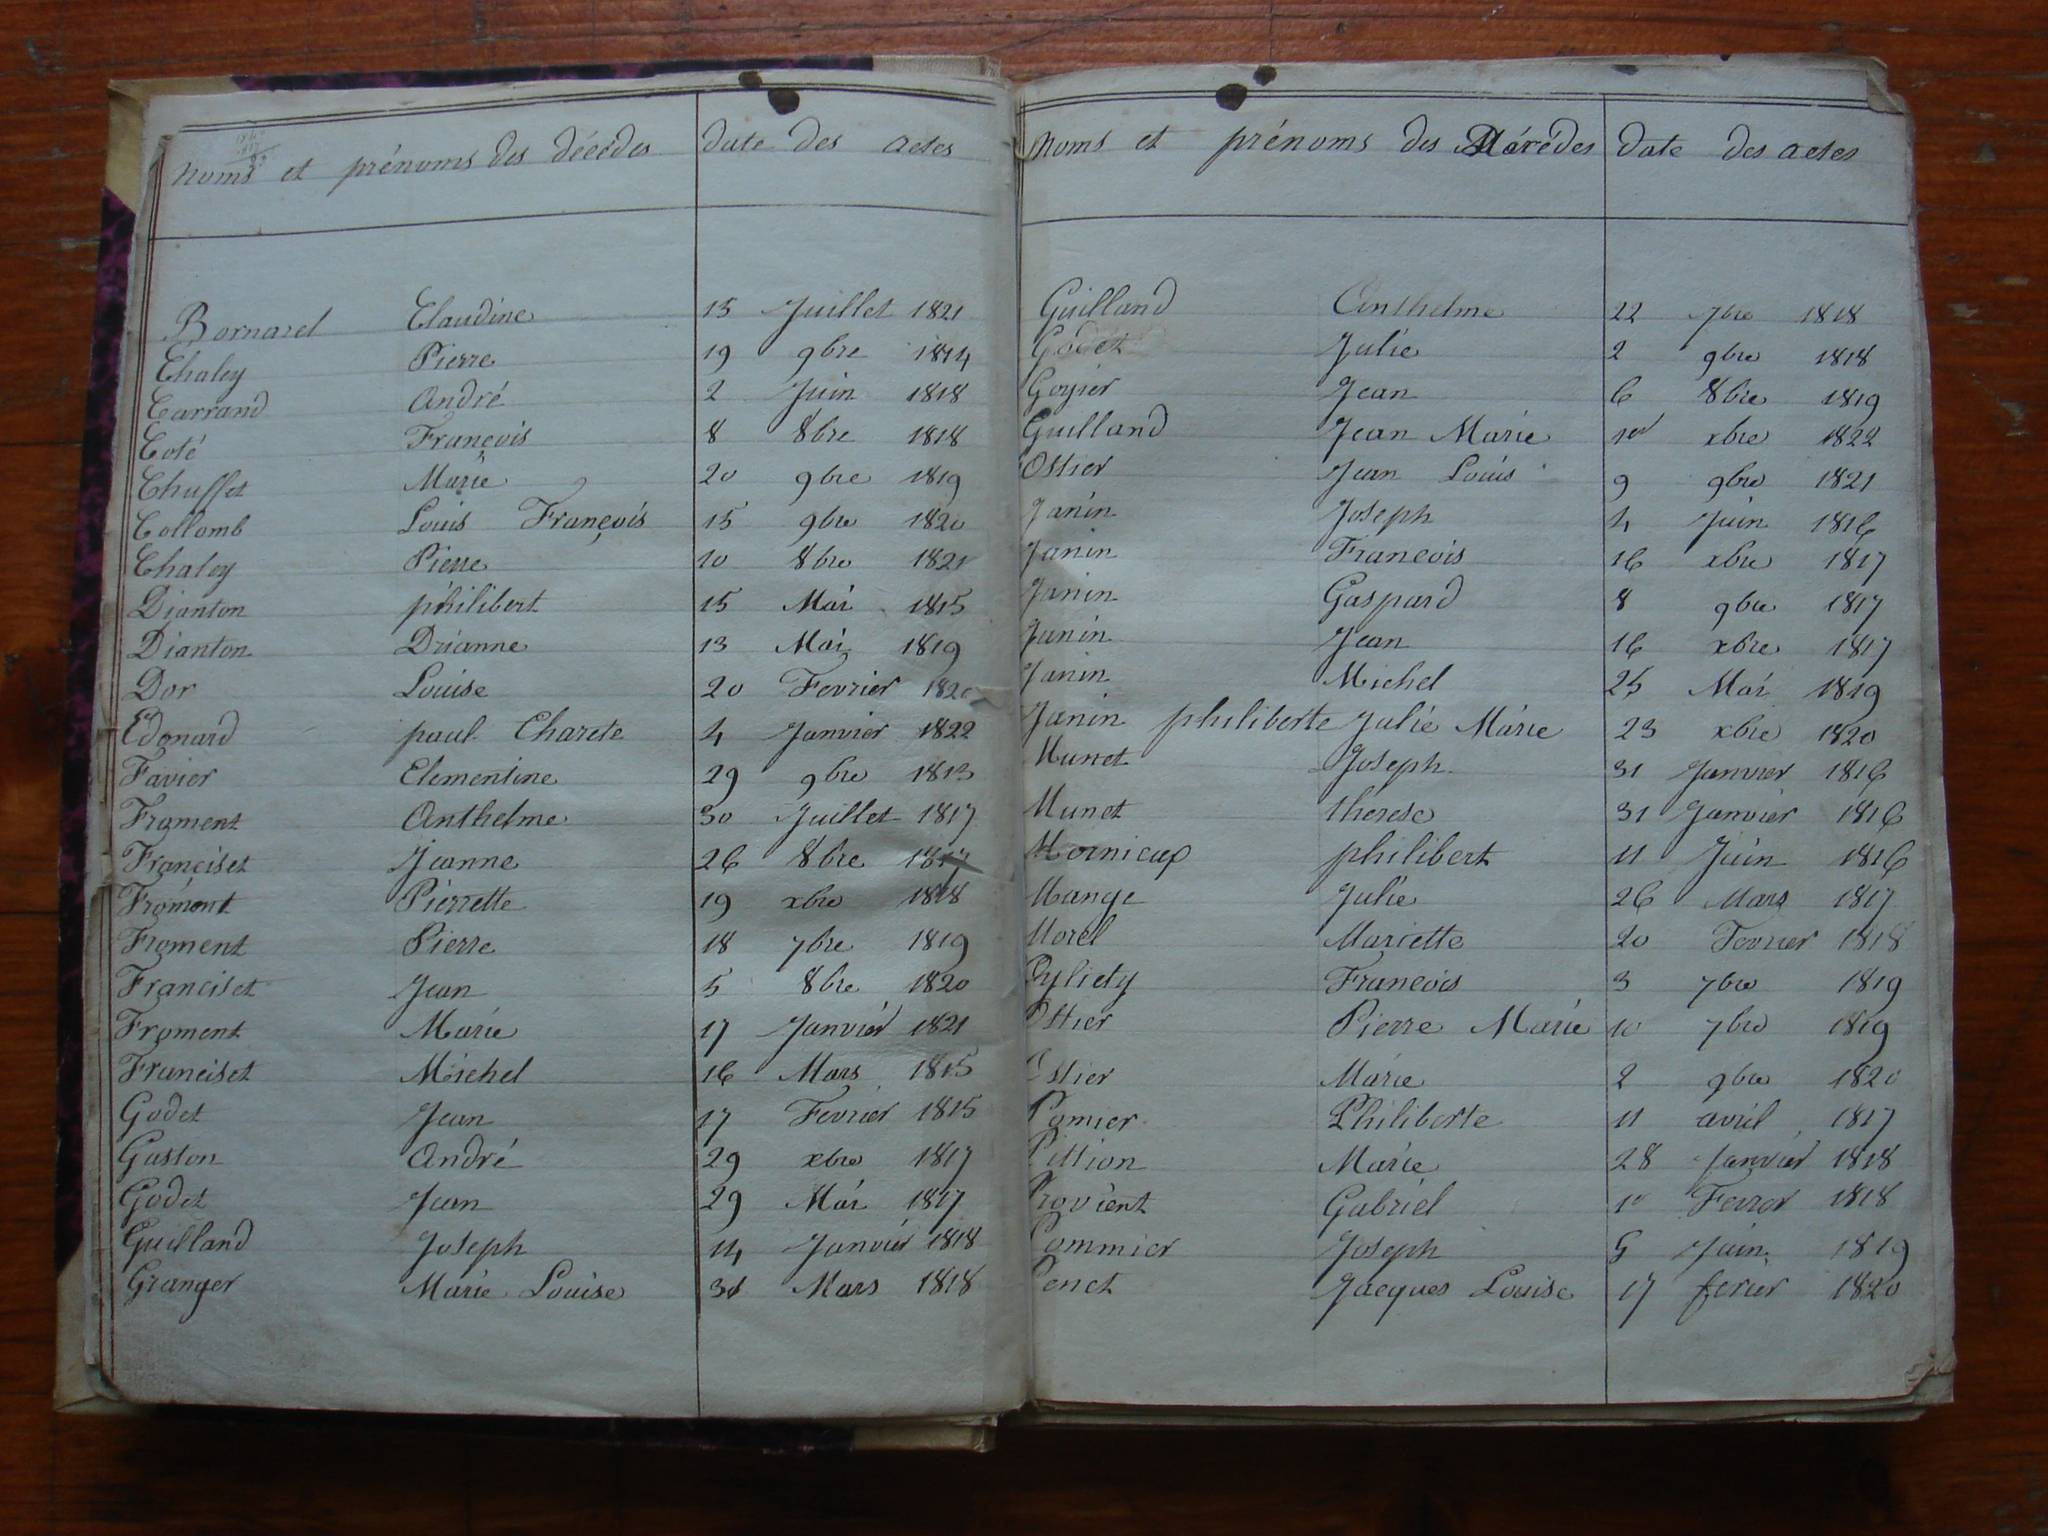 noms et prénoms des décédes date des actes
Bornarel Claudine 15 Juillet 1821
Chaley Pierre 19 9bre 1814
Carrand André 2 Juin 1818
Coté François 8 8bre 1818
Chuffet Marie 20 9bre 1819
Collomb Louis François 15 9bre 1820
Chaley Pierre 10 8bre 1821
Dianton philibert 15 Mai 1815
Dianton Drianne 13 Mai 1819
Dor Louise 20 Fevrier 1820
Edonard paul Charete 4 Janvier 1822
Favier Clementine 29 9bre 1813
Froment Anthelme 30 Juillet 1817
Franciset Jeanne 26 8bre
Froment Pierrette 19 xbre 1818
Froment Pierre 18 7bre 1819
Franciset Jean 5 8bre 1820
Froment Marie 17 Janvier 1821
Franciset Michel 16 Mars 1815
Godet Jean 17 Fevrier 1815
Gaston André 29 xbre 1817
Godet Jean 29 Mai 1817
Guilland Joseph 14 Janvier 1818
Granger Marie Louise 31 Mars 1818
noms et prénoms des date des actes
Guilland Anthelme 22 7bre 1818
Godet Julie 2 9bre 1818
Goyier Jean 6 8bre 1819
Guilland Jean Marie 1er xbre 1822
Ostier Jean Louis 9 9bre 1821
Janin Joseph 4 Juin 1816
Janin Francois 16 xbre 1817
Janin Gaspard 8 9bre 1817
Janin Jean 16 xbre 1817
Janin Michel 25 Mai 1819
Janin philiberte Julie Marie 23 xbre 1820
Munet Joseph 31 Janvier 1816
Munet therese 31 Janvier 1816
Mornieux philibert 11 Juin 1816
Mange Julie 26 Mars 1817
Morel Mariette 20 Fevrier 1818
Francois 3 7bre 1819
Ostier Pierre Marie 10 7bre 1819
Ostier Marie 2 9bre 1820
Pomier Philiberte 11 avril 1817
Pittion Marie 28 Janvier 1818
Provient Gabriel 1er Fevrer 1818
Pommier Joseph 5 Juin 1819
Penet Jacques Louise 17 ferier 1820